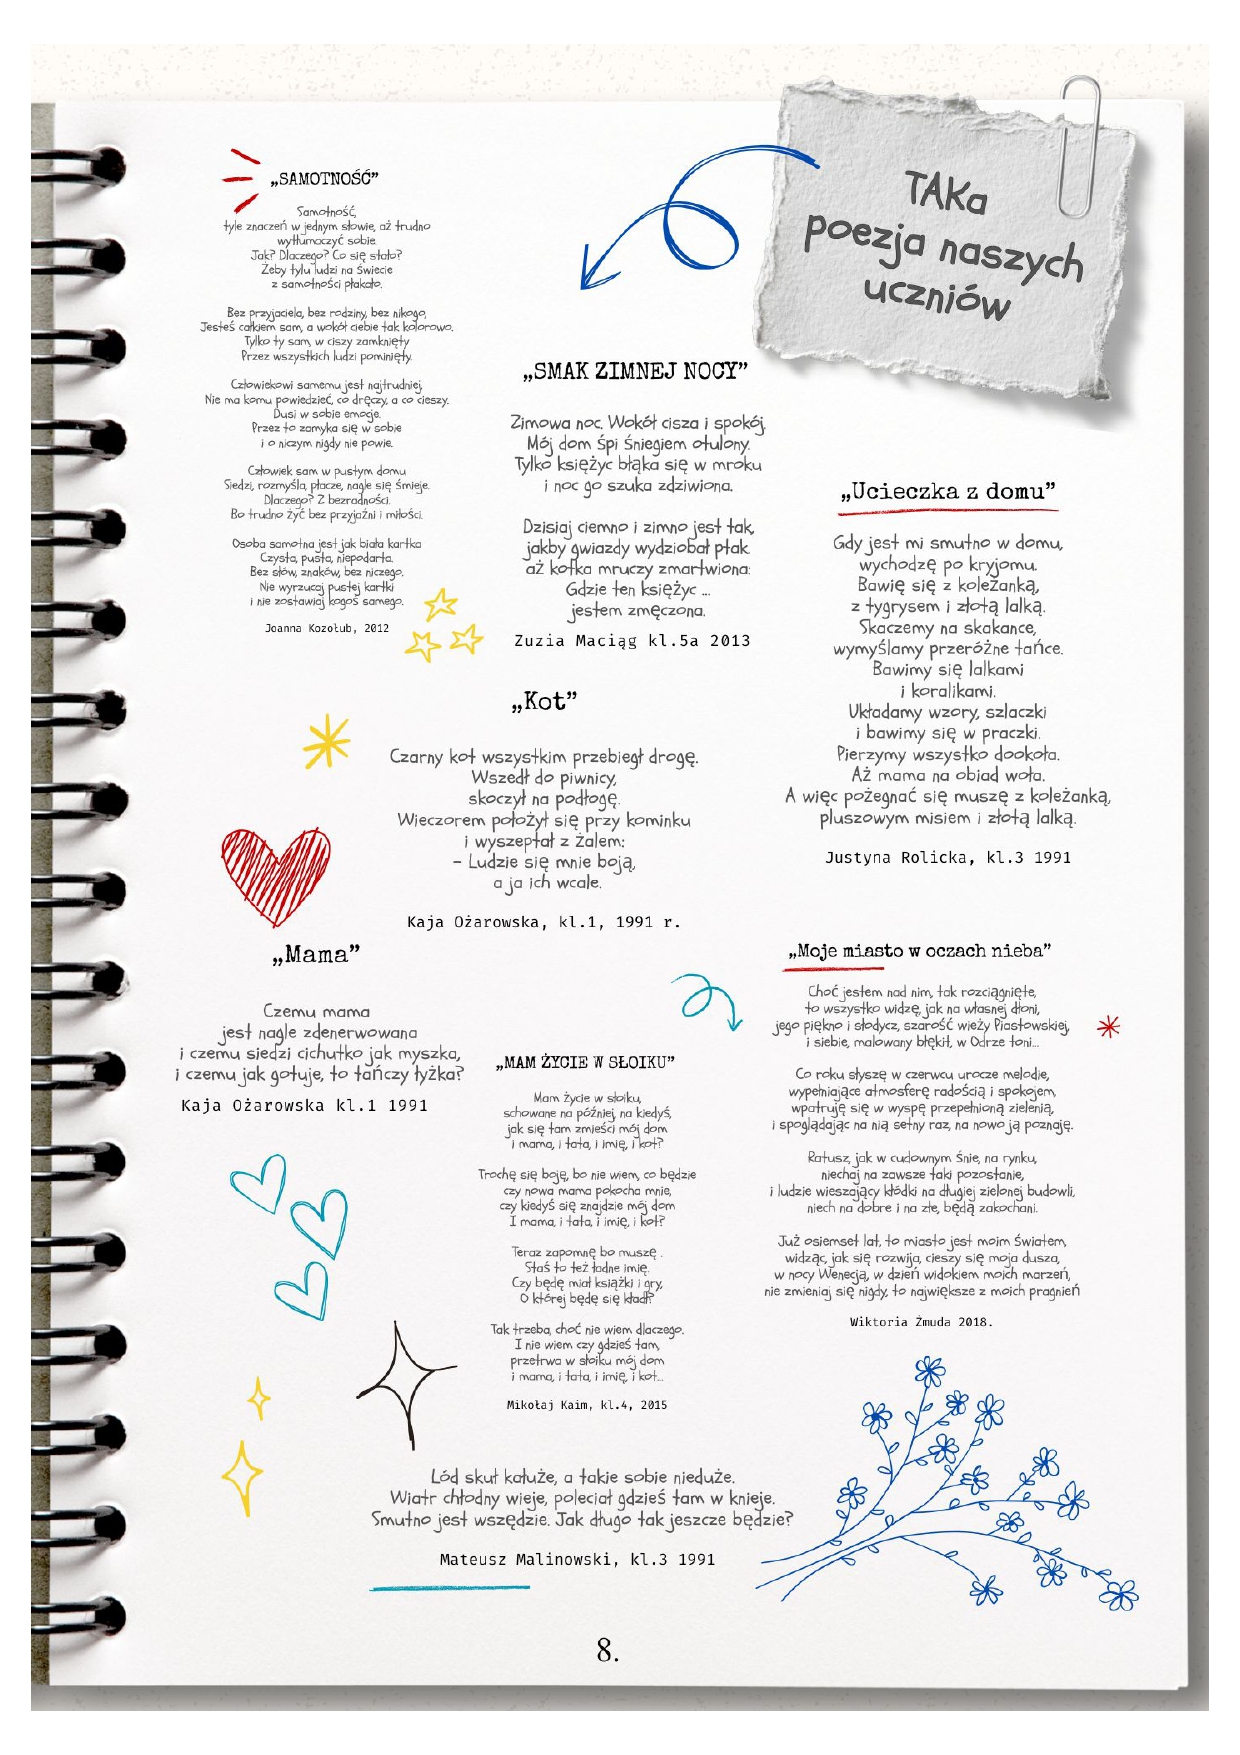 TAKa
poezja naszych
uczniów
„SAMOTNOŚĆ”
Samotność,
tyle znaczeń w jednym słowie, aż trudno
wytłumaczyć sobie.
Jak? Dlaczego? Co się stało?
Żeby tylu ludzi na świecie
z samotności płakało.
Bez przyjaciela, bez rodziny, bez nikogo,
Jesteś całkiem sam, a wokół ciebie tak kolorowo.
Tylko ty sam, w ciszy zamknięty
Przez wszystkich ludzi pominięty.
Człowiekowi samemu jest najtrudniej,
Nie ma komu powiedzieć, co dręczy, a co cieszy.
Dusi w sobie emocje.
Przez to zamyka się w sobie
i o niczym nigdy nie powie.
Człowiek sam w pustym domu
Siedzi, rozmyśla, płacze, nagle się śmieje.
Dlaczego? Z bezradności.
Bo trudno żyć bez przyjaźni i miłości.
Osoba samotna jest jak biała kartka
Czysta, pusta, niepodarta.
Bez słów, znaków, bez niczego,
Nie wyrzucaj pustej kartki
i nie zostawiaj kogoś samego.
Joanna Kozołub, 2012
„SMAK ZIMNEJ NOCY”
Zimowa noc. Wokół cisza i spokój.
Mój dom śpi śniegiem otulony.
Tylko księżyc błąka się w mroku
i noc go szuka zdziwiona.
Dzisiaj ciemno i zimno jest tak,
jakby gwiazdy wydziobał ptak.
aż kotka mruczy zmartwiona:
Gdzie ten księżyc ...
jestem zmęczona.
Zuzia Maciąg kl.5a 2013
„Ucieczka z domu”
Gdy jest mi smutno w domu,
wychodzę po kryjomu.
Bawię się z koleżanką,
z tygrysem i złotą lalką.
Skaczemy na skakance,
wymyślamy przeróżne tańce.
Bawimy się lalkami
i koralikami.
Układamy wzory, szlaczki
i bawimy się w praczki.
Pierzymy wszystko dookoła.
Aż mama na obiad woła.
A więc pożegnać się muszę z koleżanką,
pluszowym misiem i złotą lalką.
Justyna Rolicka, kl.3 1991
„Kot”
Czarny kot wszystkim przebiegł drogę.
Wszedł do piwnicy,
skoczył na podłogę.
Wieczorem położył się przy kominku
i wyszeptał z żalem:
- Ludzie się mnie boją,
a ja ich wcale.
Kaja Ożarowska, kl.1, 1991 r.
„Mama”
Czemu mama
jest nagle zdenerwowana
i czemu siedzi cichutko jak myszka,
i czemu jak gotuje, to tańczy łyżka?
Kaja Ożarowska kl.1 1991
„MAM ŻYCIE W SŁOIKU”
Mam życie w słoiku,
schowane na później, na kiedyś,
jak się tam zmieści mój dom
i mama, i tata, i imię, i kot?
Trochę się boję, bo nie wiem, co będzie
czy nowa mama pokocha mnie,
czy kiedyś się znajdzie mój dom
I mama, i tata, i imię, i kot?
Teraz zapomnę bo muszę .
Staś to też ładne imię.
Czy będę miał książki i gry,
O której będę się kładł?
Tak trzeba, choć nie wiem dlaczego.
I nie wiem czy gdzieś tam,
przetrwa w słoiku mój dom
i mama, i tata, i imię, i kot...
Mikołaj Kaim, kl.4, 2015
„Moje miasto w oczach nieba”
Choć jestem nad nim, tak rozciągnięte,
to wszystko widzę, jak na własnej dłoni,
jego piękno i słodycz, szarość wieży Piastowskiej,
i siebie, malowany błękit, w Odrze toni...
Co roku słyszę w czerwcu urocze melodie,
wypełniające atmosferę radością i spokojem,
wpatruję się w wyspę przepełnioną zielenią,
i spoglądając na nią setny raz, na nowo ją poznaję.
Ratusz, jak w cudownym śnie, na rynku,
niechaj na zawsze taki pozostanie,
i ludzie wieszający kłódki na długiej zielonej budowli,
niech na dobre i na złe, będą zakochani.
Już osiemset lat, to miasto jest moim światem,
widząc, jak się rozwija, cieszy się moja dusza,
w nocy Wenecją, w dzień widokiem moich marzeń,
nie zmieniaj się nigdy, to największe z moich pragnień
Wiktoria Żmuda 2018.
Lód skuł kałuże, a takie sobie nieduże.
Wiatr chłodny wieje, poleciał gdzieś tam w knieje.
Smutno jest wszędzie. Jak długo tak jeszcze będzie?
Mateusz Malinowski, kl.3 1991
8.